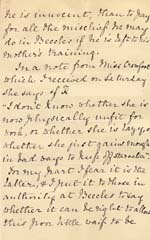 he is innocent, than to pay
for all the mischief he may
do in Beccles if he is left to his
mother's training.
In a note from Miss Crowfoot
which I received on Saturday
she says of
"I don't know whether she is
now physically unfit for
work, or whether she is lazy or
whether she just gains enough
in bad ways to keep
For my part I fear it is the
latter, & I put it to those in
authority at Beccles to say
whether it can be right to allow
this poor little waif to be